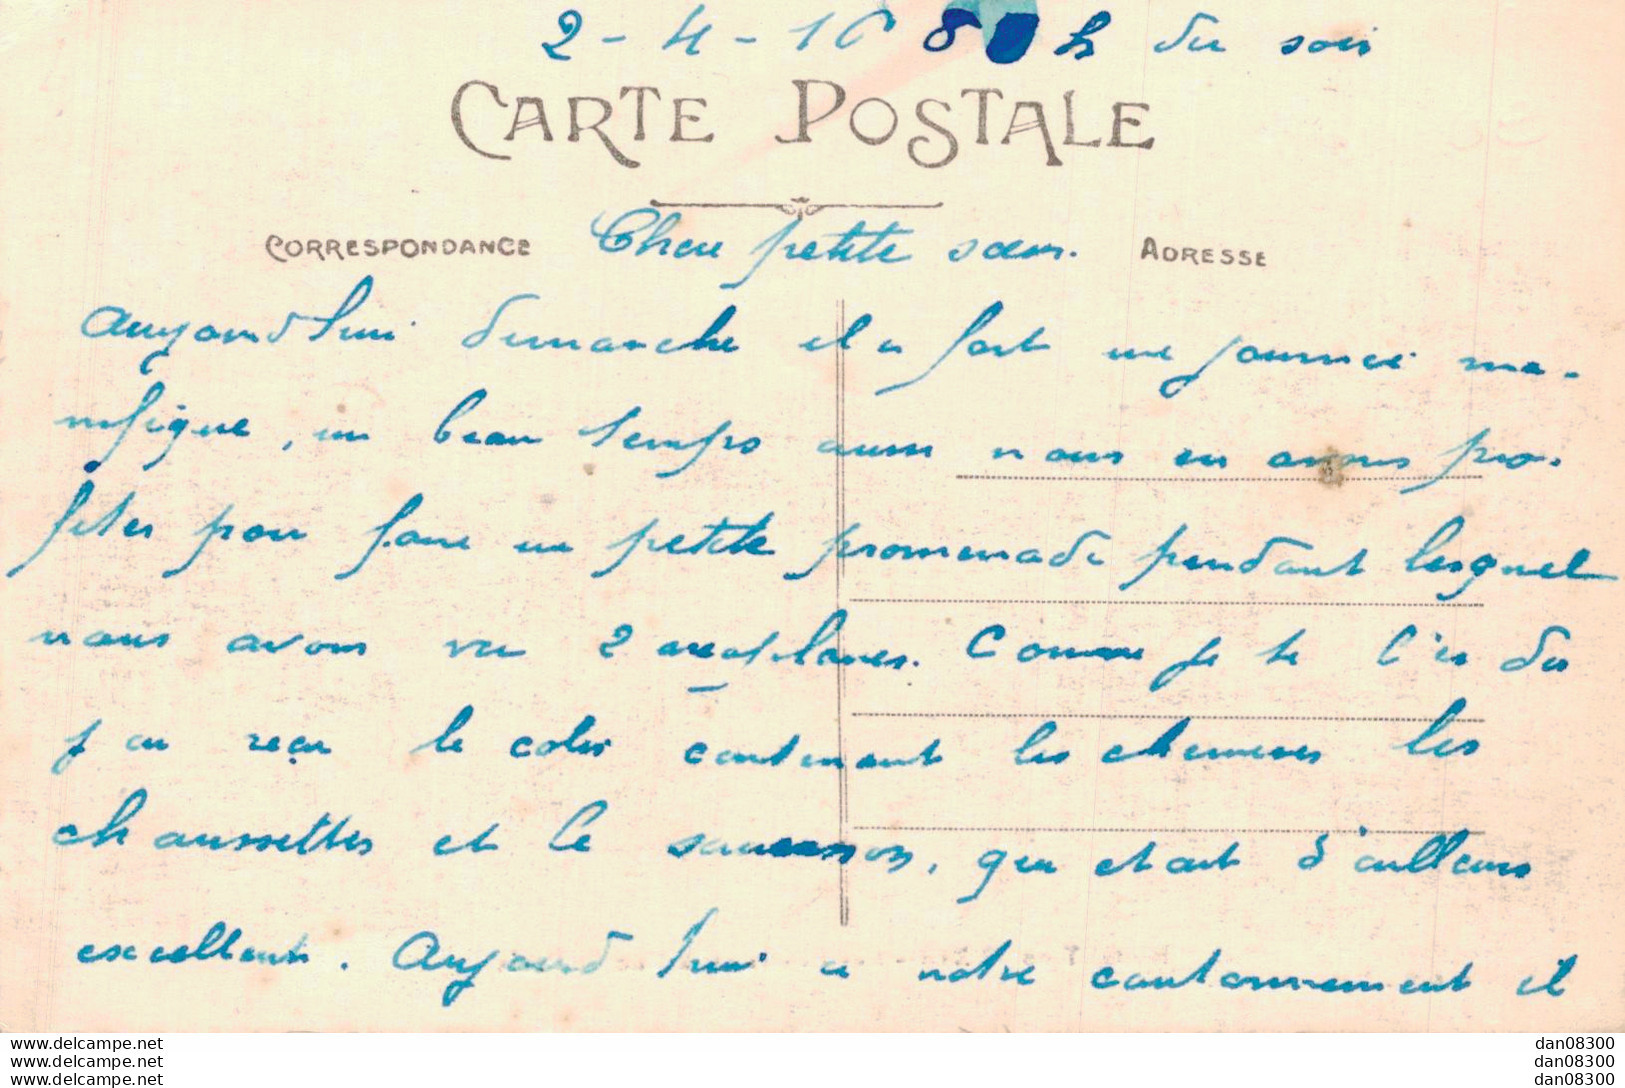 2-4-16 8 h du soir
CARTE POSTALE
CORRESPONDANCE Chere petite sœur. ADRESSE
Aujourd'hui dimanche il a fait une journée ma-
nifique, un beau temps aussi nous en avons pro-
fiter pour faire une petite promenade pendant lesquel
nous avons vu 2 aeroplanes. Comme je te l'ai du
j'ai reçu le colis contenant les chemises les
chaussettes et le saucisson, qui etait d'ailleurs
excellent. Aujourd'hui a notre cantonnement il
www.delcampe.net
www.delcampe.net
www.delcampe.net
dan08300
dan08300
dan08300